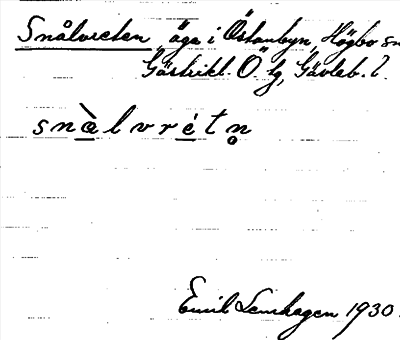 Snålvreten äga i Östanbyn, Högbo sn
Gästrikl. Ö. tg, Gävleb. l.
snålvrétn
Emil Lenhagen 1930.